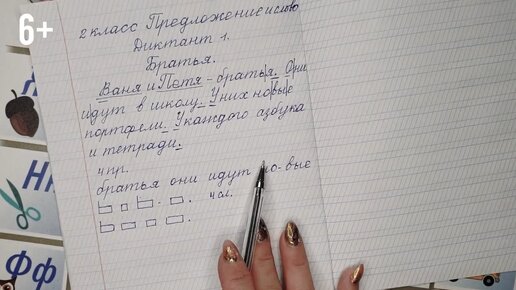 6+
2 класс Предложение и слово
Диктант 1.
Братья.
Ваня и Петя - братья. Они
идут в школу. У них новые
портфели. У каждого азбука
и тетради.
4 пр.
братья они идут но-вые
4 сл.
Нн
Фф